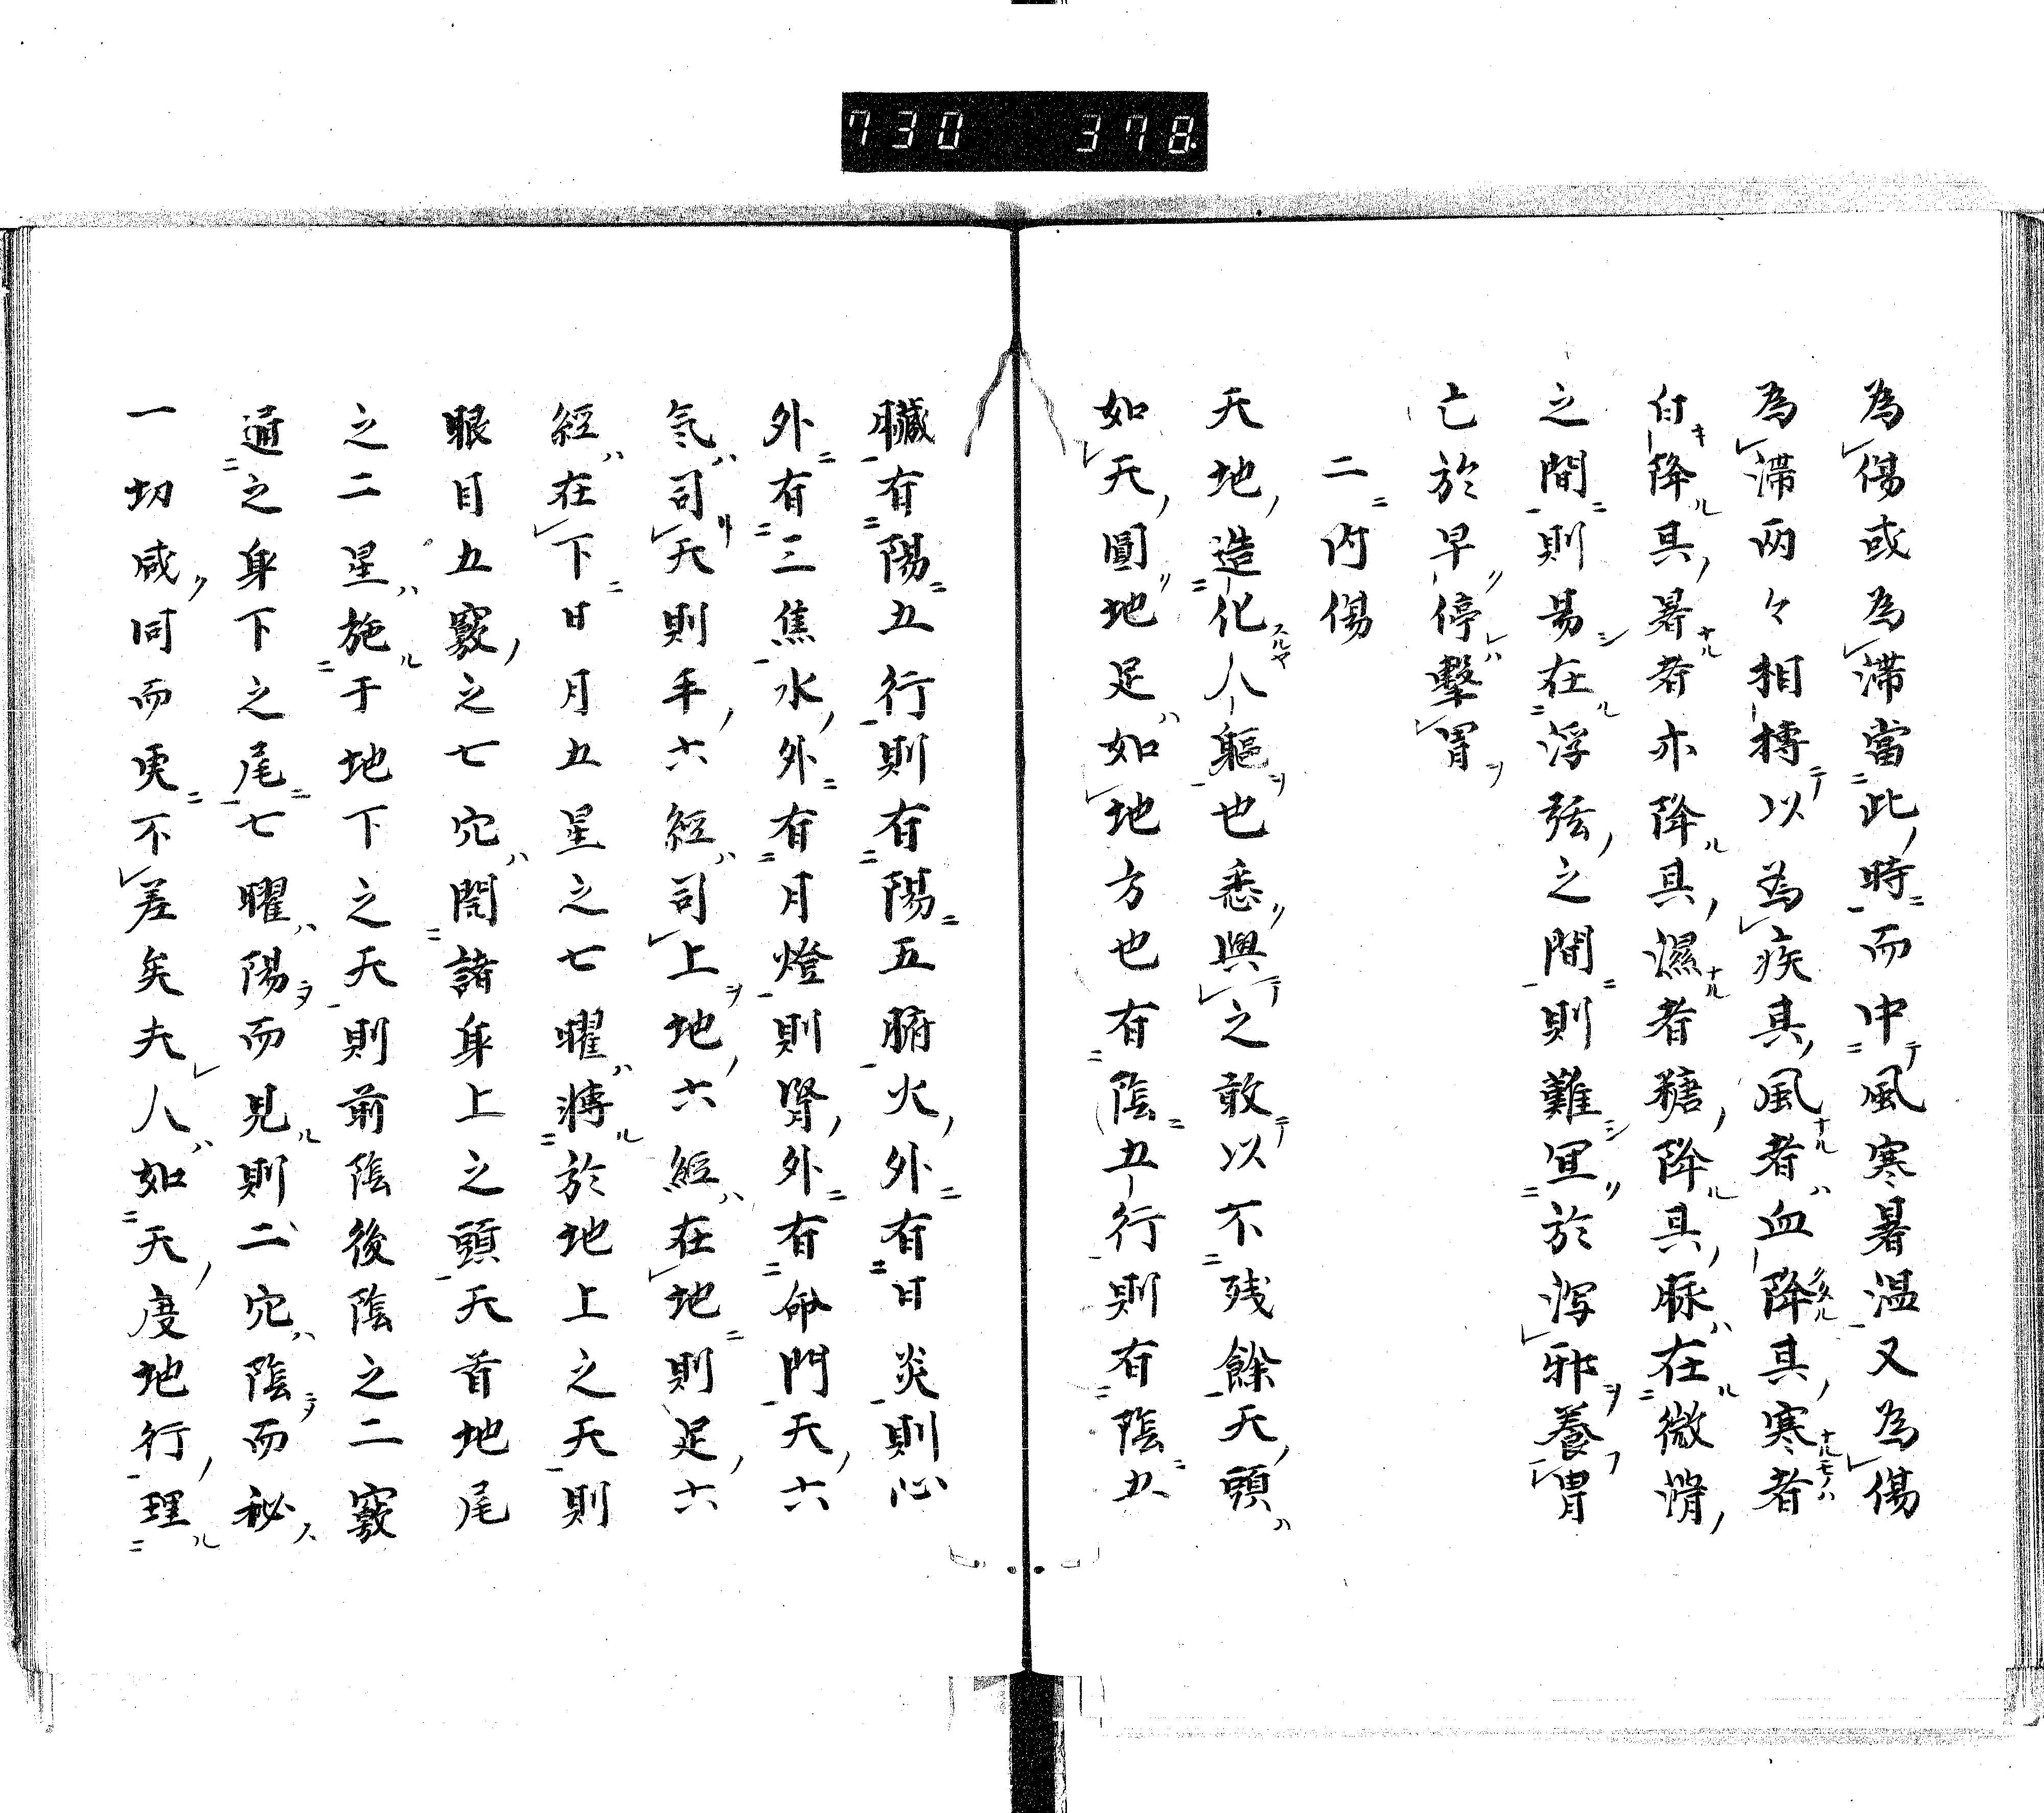 730 378
為傷或為滞當此時而中風寒暑温又為傷
為滞両々相摶以為疾其風者血降其寒者
白降其暑者亦降其濕者糖降其脉在微滑
之間則易在浮弦之間則難宜於瀉邪養胃
亡於早停擊胃
二内傷
天地造化人軀也悉與之敢以不残餘天頭
如天圓地足如地方也有陰五行則有陰五
臓有陽五行則有陽五腑火外有日炎則心
外有三焦水外有月燈則腎外有命門天六
氣司天則手六經司上地六經在地則足六
經在下日月五星之七曜轉於地上之天則
眼目五竅之七穴開諸身上之頭天首地尾
之二星施于地下之天則前陰後陰之二竅
通之身下之尾七曜陽而見則二穴陰而秘
一切咸同而更不差矣夫人如天度地行理